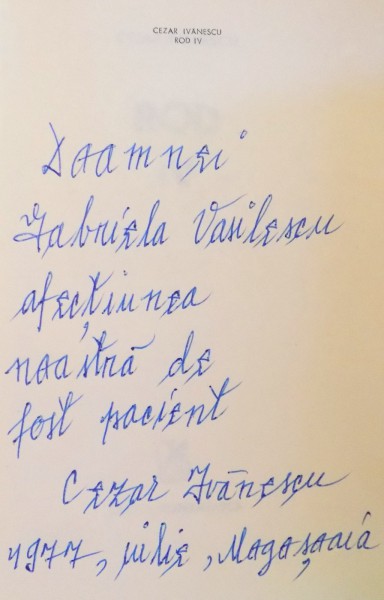 CEZAR IVĂNESCU
ROD IV
Doamnei
Gabriela Vasilescu
afecțiunea
noastră de
fost pacient
Cezar Ivănescu
1977, iulie,